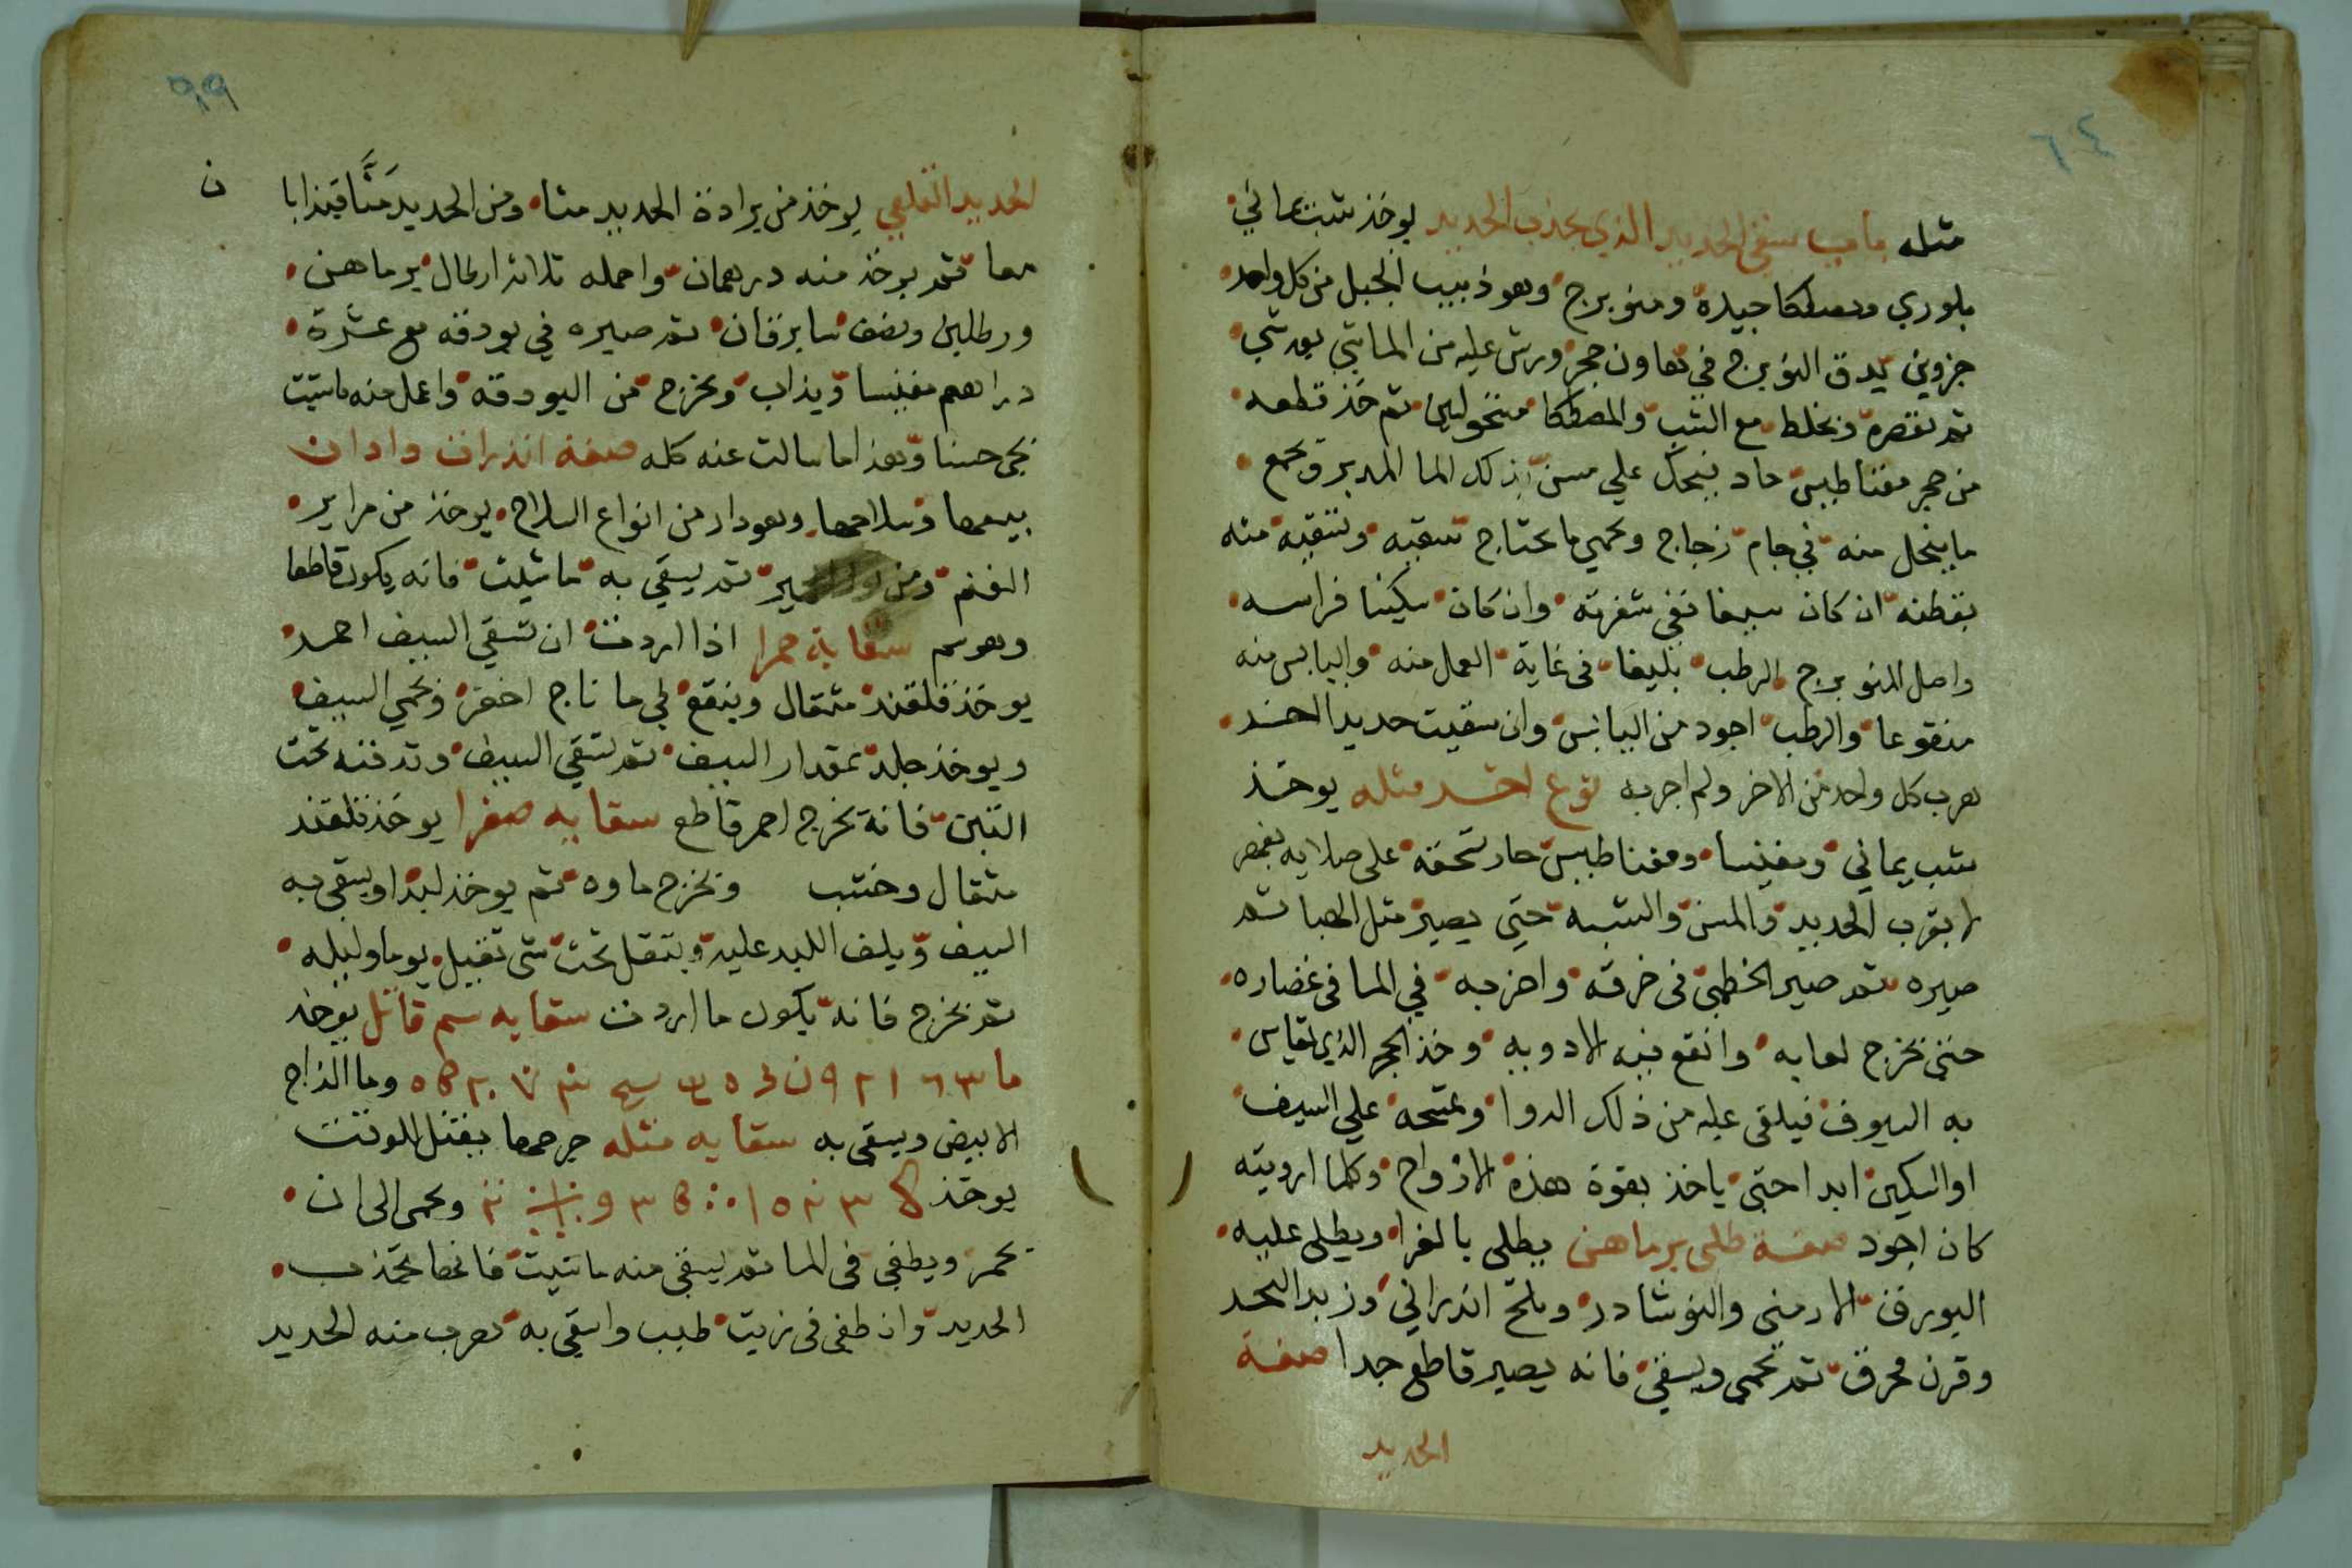 ٦٤
مثله باب سقي الحديد الذي يجذب الحديد يوخذ شب يماني
بلوري ومصطكا جيدة ومنوبرج وهو ذبيب الجبل من كل واحد
جزوين يدق النوبرج في هاون حجر ورش عليه من الماشي بعد شي
ثم تعصره وتخلط مع الشب والمصطكا منخولين ثم خذ قطعه
من حجر مغناطيس حاد ينحك علي مسن بذلك الما المدبر وتجمع
ما ينحل منه في جام زجاج وتحمي ما تحتاج تسقيه وتسقيه منه
بقطنه ان كان سيفا ففي شفرته وان كان سكينا فراسه
واصل المنوبرج الرطب بليغا في غاية العمل منه واليابس منه
منقوعا والرطب اجود من اليابس وان سقيت حديدا اخر
هرب كل واحد من الاخر ولم اجربه نوع اخر مثله يوخذ
شب يماني ومغنيسا ومغناطيس حار تسحقه علي صلايه
لا يقرب الحديد والمسن والشبه حتي يصير مثل الهبا ثم
صيره ثم صير الخطمي في خرقه واضربه في الما في غضاره
حتي تخرج لعابه وانقع فيه الادويه وخذ الحجر الذي
به السيوف فيلقي عليه من ذلك الدوا وتمسحه علي السيف
او السكين ابدا حتي ياخذ بقوة هذه الارواح وكلما ارويته
كان اجود صفة طلي برماهن يطلي بالغرا ويطلي عليه
البورق الارمني والنوشادر وملح اندراني وزبد البحر
وقرن محرق ثم تحمي ويسقي فانه يصير قاطع جدا صفة
الحديد
٩٩
الحديد القلعي يوخذ من برادة الحديد منا ومن الحديد منا فيذابا
ن
معا ثم يوخذ منه درهمان واحمله ثلاثة ارطال برماهن
ورطلين ونصف سابرقان ثم صيره في بودقه مع عشرة
دراهم مغنيسا ويذاب ويخرج من البودقة واعمل منه ما شيت
يجي حسنا وهذا ما سالت عنه كله صفة
وسلاحها وهو دار من انواع السلاح يوخذ من مراير
الغنم ومن ثم يسقي به ما شيت فانه يكون قاطعا
وهو سم سقاية حمرا اذا اردت ان تسقي السيف احمر
يوخذ قلقند مثقال وينقع في ما اخضر وتحمي السيف
ويوخذ جلد بمقدار السيف ثم تسقي السيف وتدفنه تحت
التبن فانه يخرج احمر قاطع سقايه صفرا يوخذ قلقند
مثقال وخشب ويخرج ماوه ثم يوخذ لبدا ويسقي به
السيف ويلف اللبد عليه ويثقل تحت شي ثقيل يوما وليله
ثم يخرج فانه يكون ما اردت سقايه سم قاتل يوخذ
ما وما الزاج
الابيض ويسقي به سقايه مثله جرحها يقتل للوقت
يوخذ ويحمي الي ان
يحمر ويطفي في الما ثم يسقي منه ما شيت فانها تجذب
الحديد وان طفي في زيت طيب واسقي به هرب منه الحديد